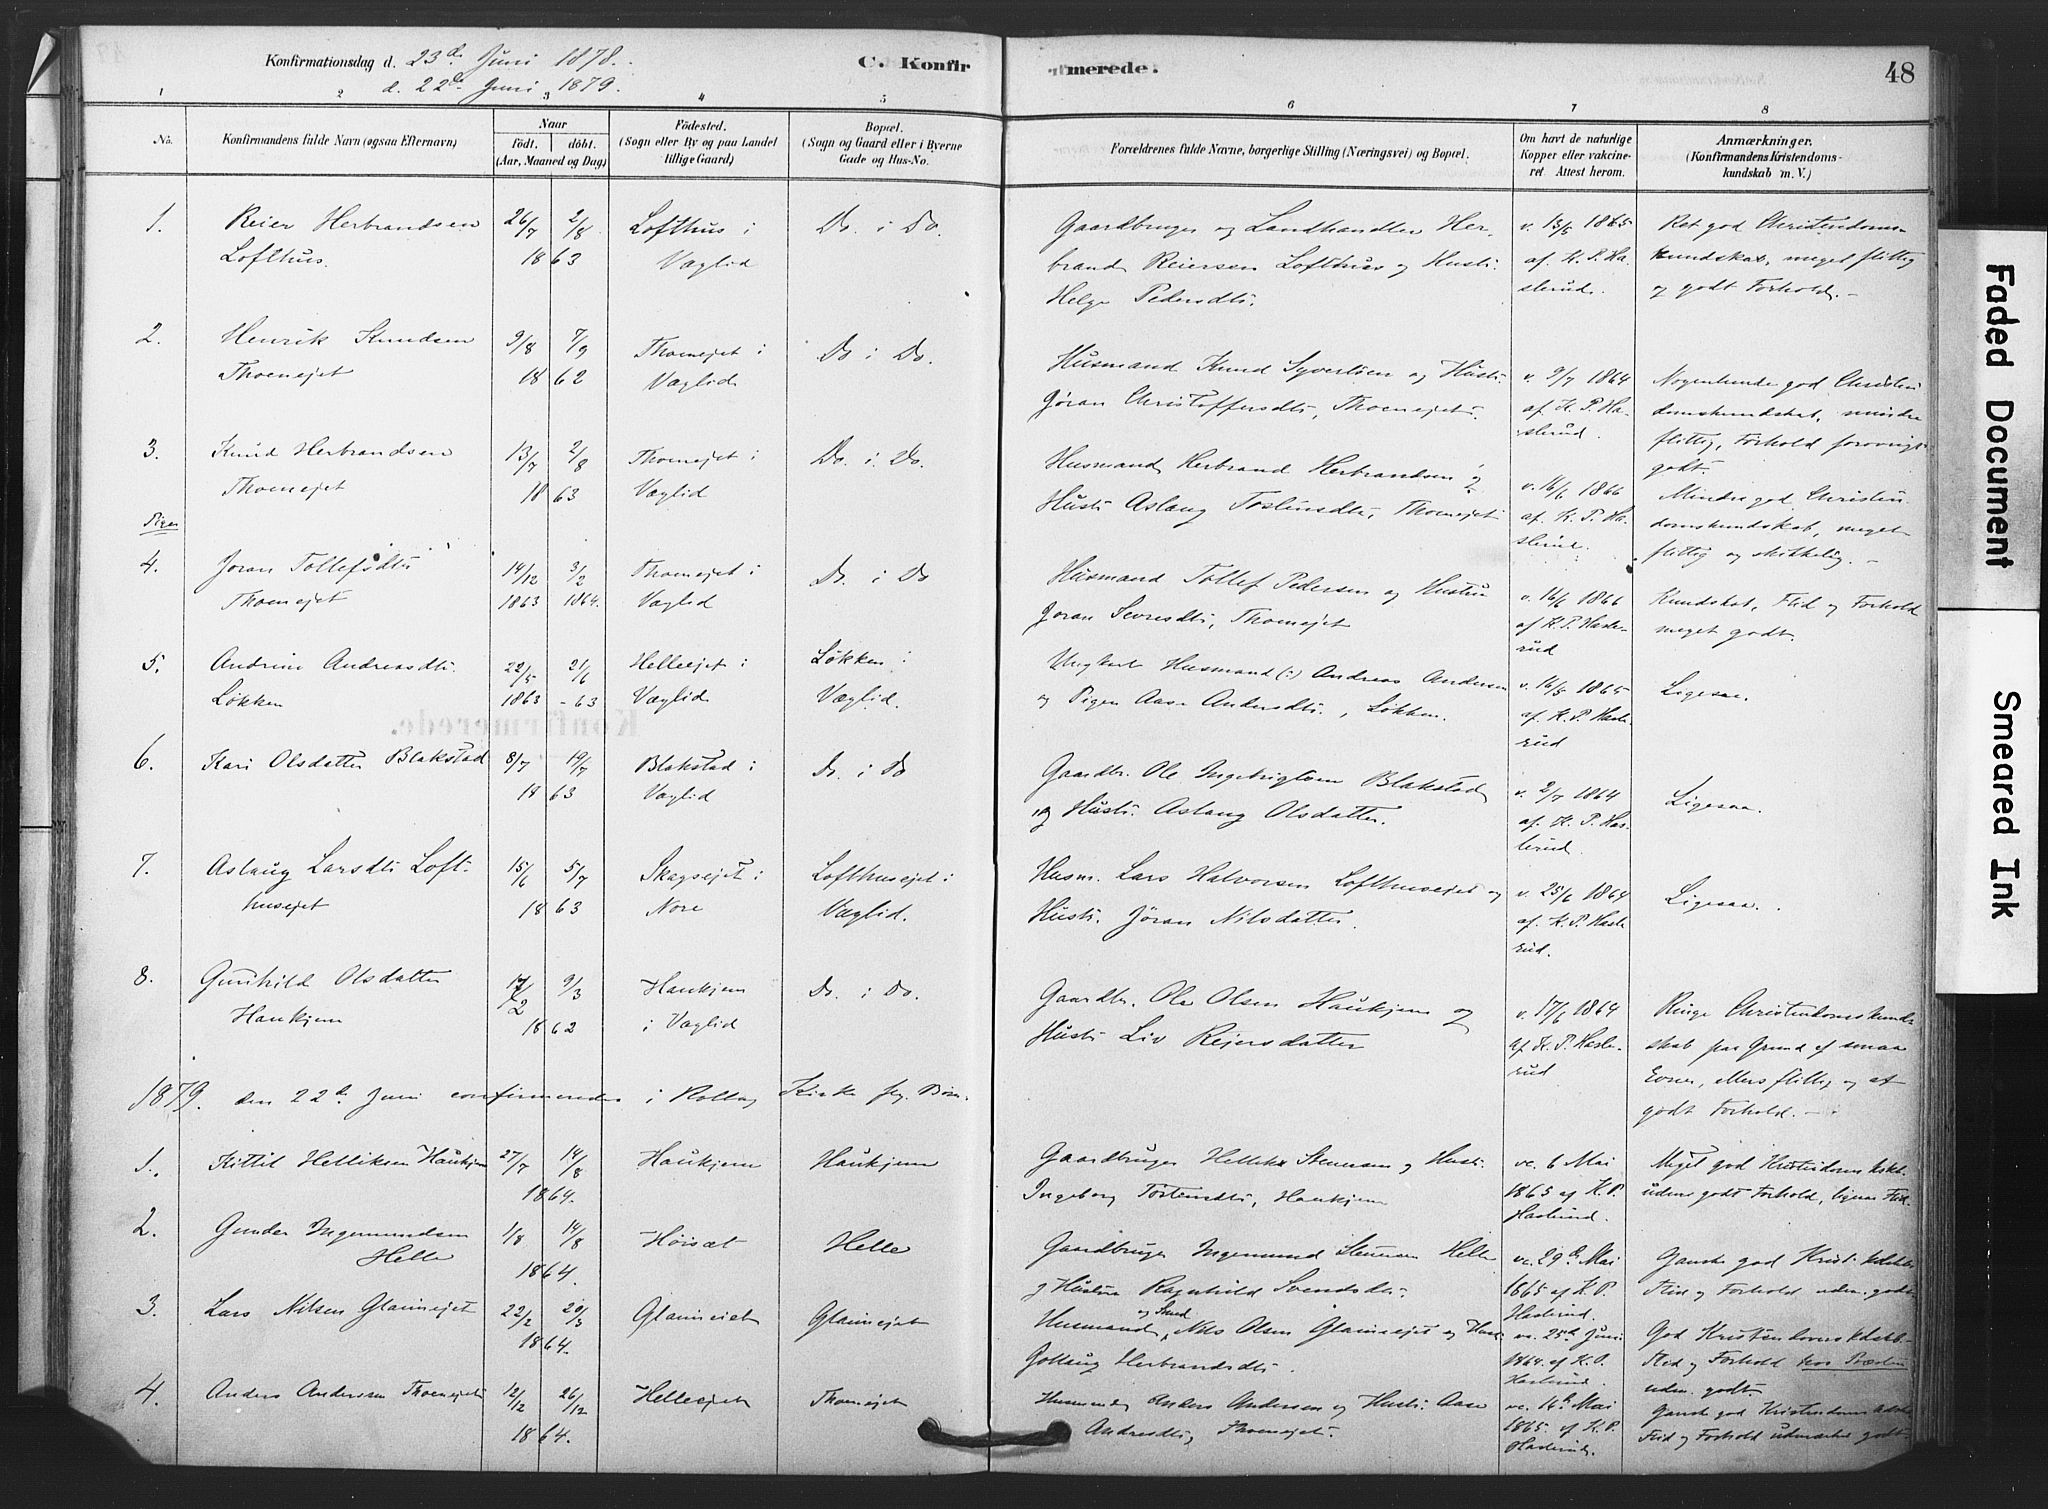 Konfirmationsdag d. 23de Juni 1878.
d. 22de Juni 1879.
C. Konfirmerede.
48
1 2 3 4 5 6 7 8
No.
Konfirmandens fulde Navn (ogsaa Efternavn)
Naar
födt. döbt.
(Aar, Maaned og Dag)
Födested.
(Sogn eller By og paa Landet
tillige Gaard)
Bopæl.
(Sogn og Gaard eller i Byerne
Gade og Hus-No.
Forældrenes fulde Navne, borgerlige Stilling (Næringsvei) og Bopæl.
Om havt de naturlige
Kopper eller vakcine-
ret Attest herom.
Anmærkninger.
(Konfirmandens Kristendoms-
kundskab m. V.)
1. Reier Herbrandsen 26/7 2/8 Lofthus i Do. i Do. Gaardbruger og Landhandler Her- v. 13/5 1865 Ret god Christendoms-
Lofthus. 1863 Væglid brand Reiersen Lofthus og Hustr. af K. P. Ha- kundskab, meget flittig
Helge Pedersdtr. slerud. og godt Forhold. -
2. Henrik Knudsen 9/8 7/9 Thoenejet i Do i Do. Husmand Knud Syvertsen og Hustr. v. 9/7 1864 Nogenlunde god Christen
Thoenejet 1862 Væglid Jøran Christoffersdtr, Thoenejet. af K. P. Ha- domskundskab, mindre
slerud. flittig, Forhold forøvrigt
godt.
3. Knud Herbrandsen 13/7 2/8 Thoenejet i Do. i Do. Husmand Herbrand Herbrandsen og v. 16/6 1866 Mindre god Christen
Thoenejet 1863 Væglid Hustr Aslaug Tostensdtr, Thoenejet af K. P. Ha- domskundskab, meget
slerud. flittig og skikkelig. -
Piger
4. Joran Tollefsdtr 14/12 3/2 Thoenejet i Do. i Do Husmand Tollef Pedersen og Hustru v. 16/6 1866 Kundskab, Flid og Forhold
Thoenejet 1863 1864. Væglid Joran Sevresdtr, Thoenejet af K. P. Hasle- meget godt.
rud
5. Andrine Andreasdtr. 22/5 21/6 Helleejet i Løkken i Ungkarl Husmand (:) Andreas Andersen v. 16/5 1865 Ligesaa.
Løkken 1863 -63 Væglid Væglid. og Pigen Aase Andersdtr., Løkken. af. K. P. Hasle-
rud
6. Kari Olsdatter Blakstad 8/7 19/7 Blakstad i Do. i Do Gaardbr. Ole Ingebrigtsen Blakstad v. 2/7 1864 Ligesaa.
1863 Væglid og Hustr. Aslaug Olsdatter. af. K. P. Has-
lerud.
7. Aslaug Larsdtr Loft- 15/6 5/7 Skagsejet i Lofthusejet i Husm. Lars Halvorsen Lofthusejet og v. 25/6 1864 Ligesaa.
husejet 1863 Nore Væglid. Hustr. Jøran Nilsdatter. af. K. P. Hasle
rud.
8. Gunhild Olsdatter 9/3 Haukjem Do. i Do. Gaardbr. Ole Olsen Haukjem og v. 17/6 1864 Ringe Christendomskund-
Haukjem 1862 i Væglid Hustr Liv Reiersdatter af K. P. Hasle- skab paa Grund af smaa
rud Evner, ellers flittig og et
godt Forhold. -
1879. den 22de Juni confirmeredes i Rollag Kirke flg. Børn.
1. Kittil Helliksen Haukjem 27/7 14/8 Haukjem Haukjem Gaardbruger Hellik Stensen og Hustr. vc. 6 Mai Meget god Kristendomskdsk.
1864. Ingeborg Torstensdtr, Haukjem 1865 af K. P. godt Forhold,
Haslerud.
2. Gunder Ingemundsen 1/8 14/8 Høisæt Helle Gaardbruger Ingemund Stensen Helle vc. 29de Mai Ganske god
Helle 1864. og Hustru Ragnhild Svendsdtr. 1865 af K. P. Flid og Forhold
Haslerud.
3. Lars Nilsen Glaimejet 22/2 20/3 Glaimejet Glaimejet Husmand og Smed Nils Olsen Glaimejet og vc. 25de Juni God
1864. Gollaug Herbrandsdtr. 1864. af K. P. Flid og Forhold hos Præsten
Haslerud. godt.
4. Anders Andersen Thoenejet 12/12 26/12 Helleejet Thoenejet Husmand Anders Andersen og Hustr. Aase vc. 16de Mai Ganske god
1864. Andresdtr, Thoenejet. 1865. af K. P. Flid og Forhold udmærket godt.
Haslerud.
Faded Document
Smeared Ink